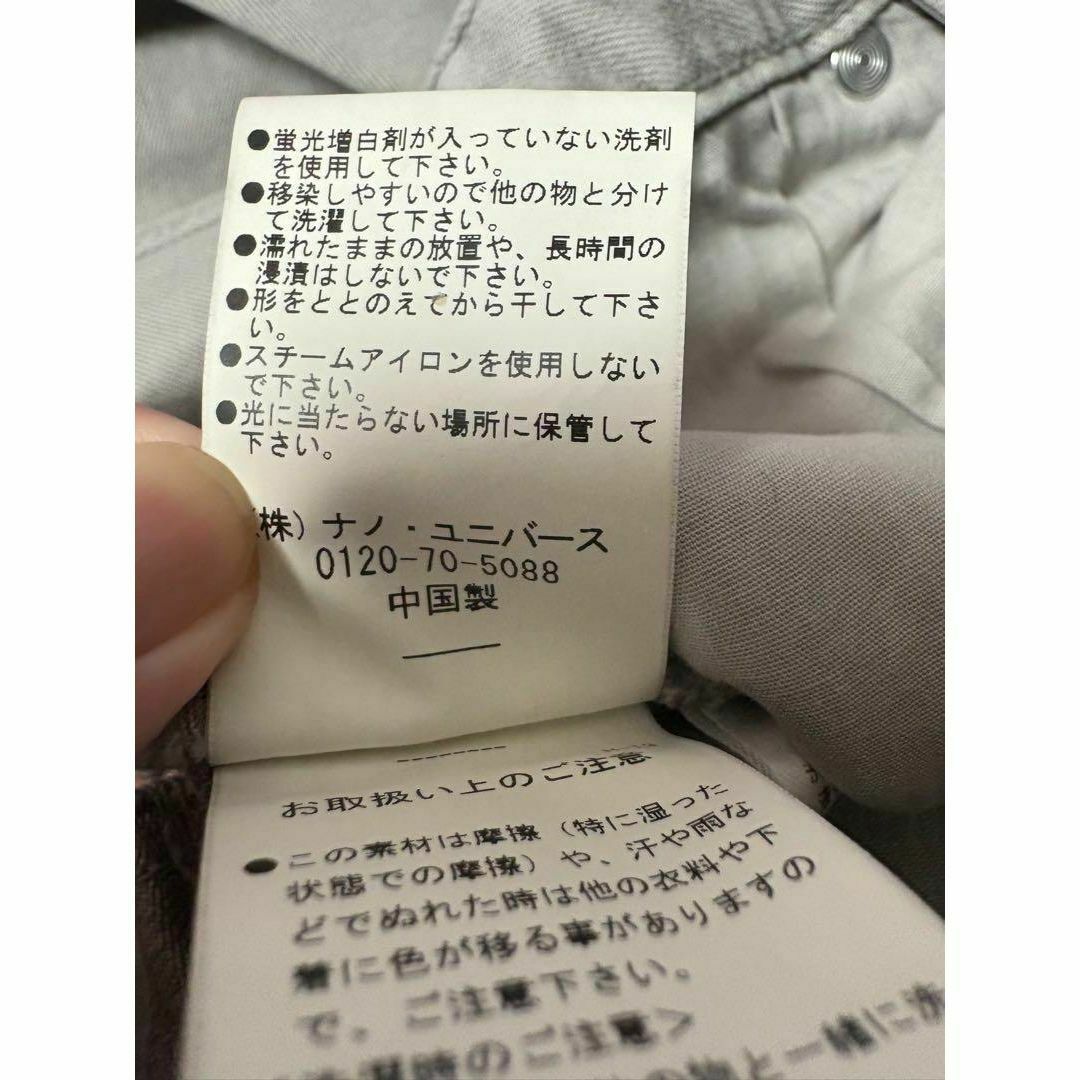 ●蛍光増白剤が入っていない洗剤
を使用して下さい。
●移染しやすいので他の物と分け
て洗濯して下さい。
●濡れたままの放置や、長時間の
浸漬はしないで下さい。
●形をととのえてから干して下さ
い。
●スチームアイロンを使用しない
で下さい。
●光に当たらない場所に保管して
下さい。
(株) ナノ・ユニバース
0120-70-5088
中国製
お取扱い上のご注意
●この素材は摩擦(特に湿った
状態での摩擦)や、汗や雨な
どでぬれた時は他の衣料や下
着に色が移る事がありますの
で、ご注意下さい。
時のご注意>
物と一緒に洗